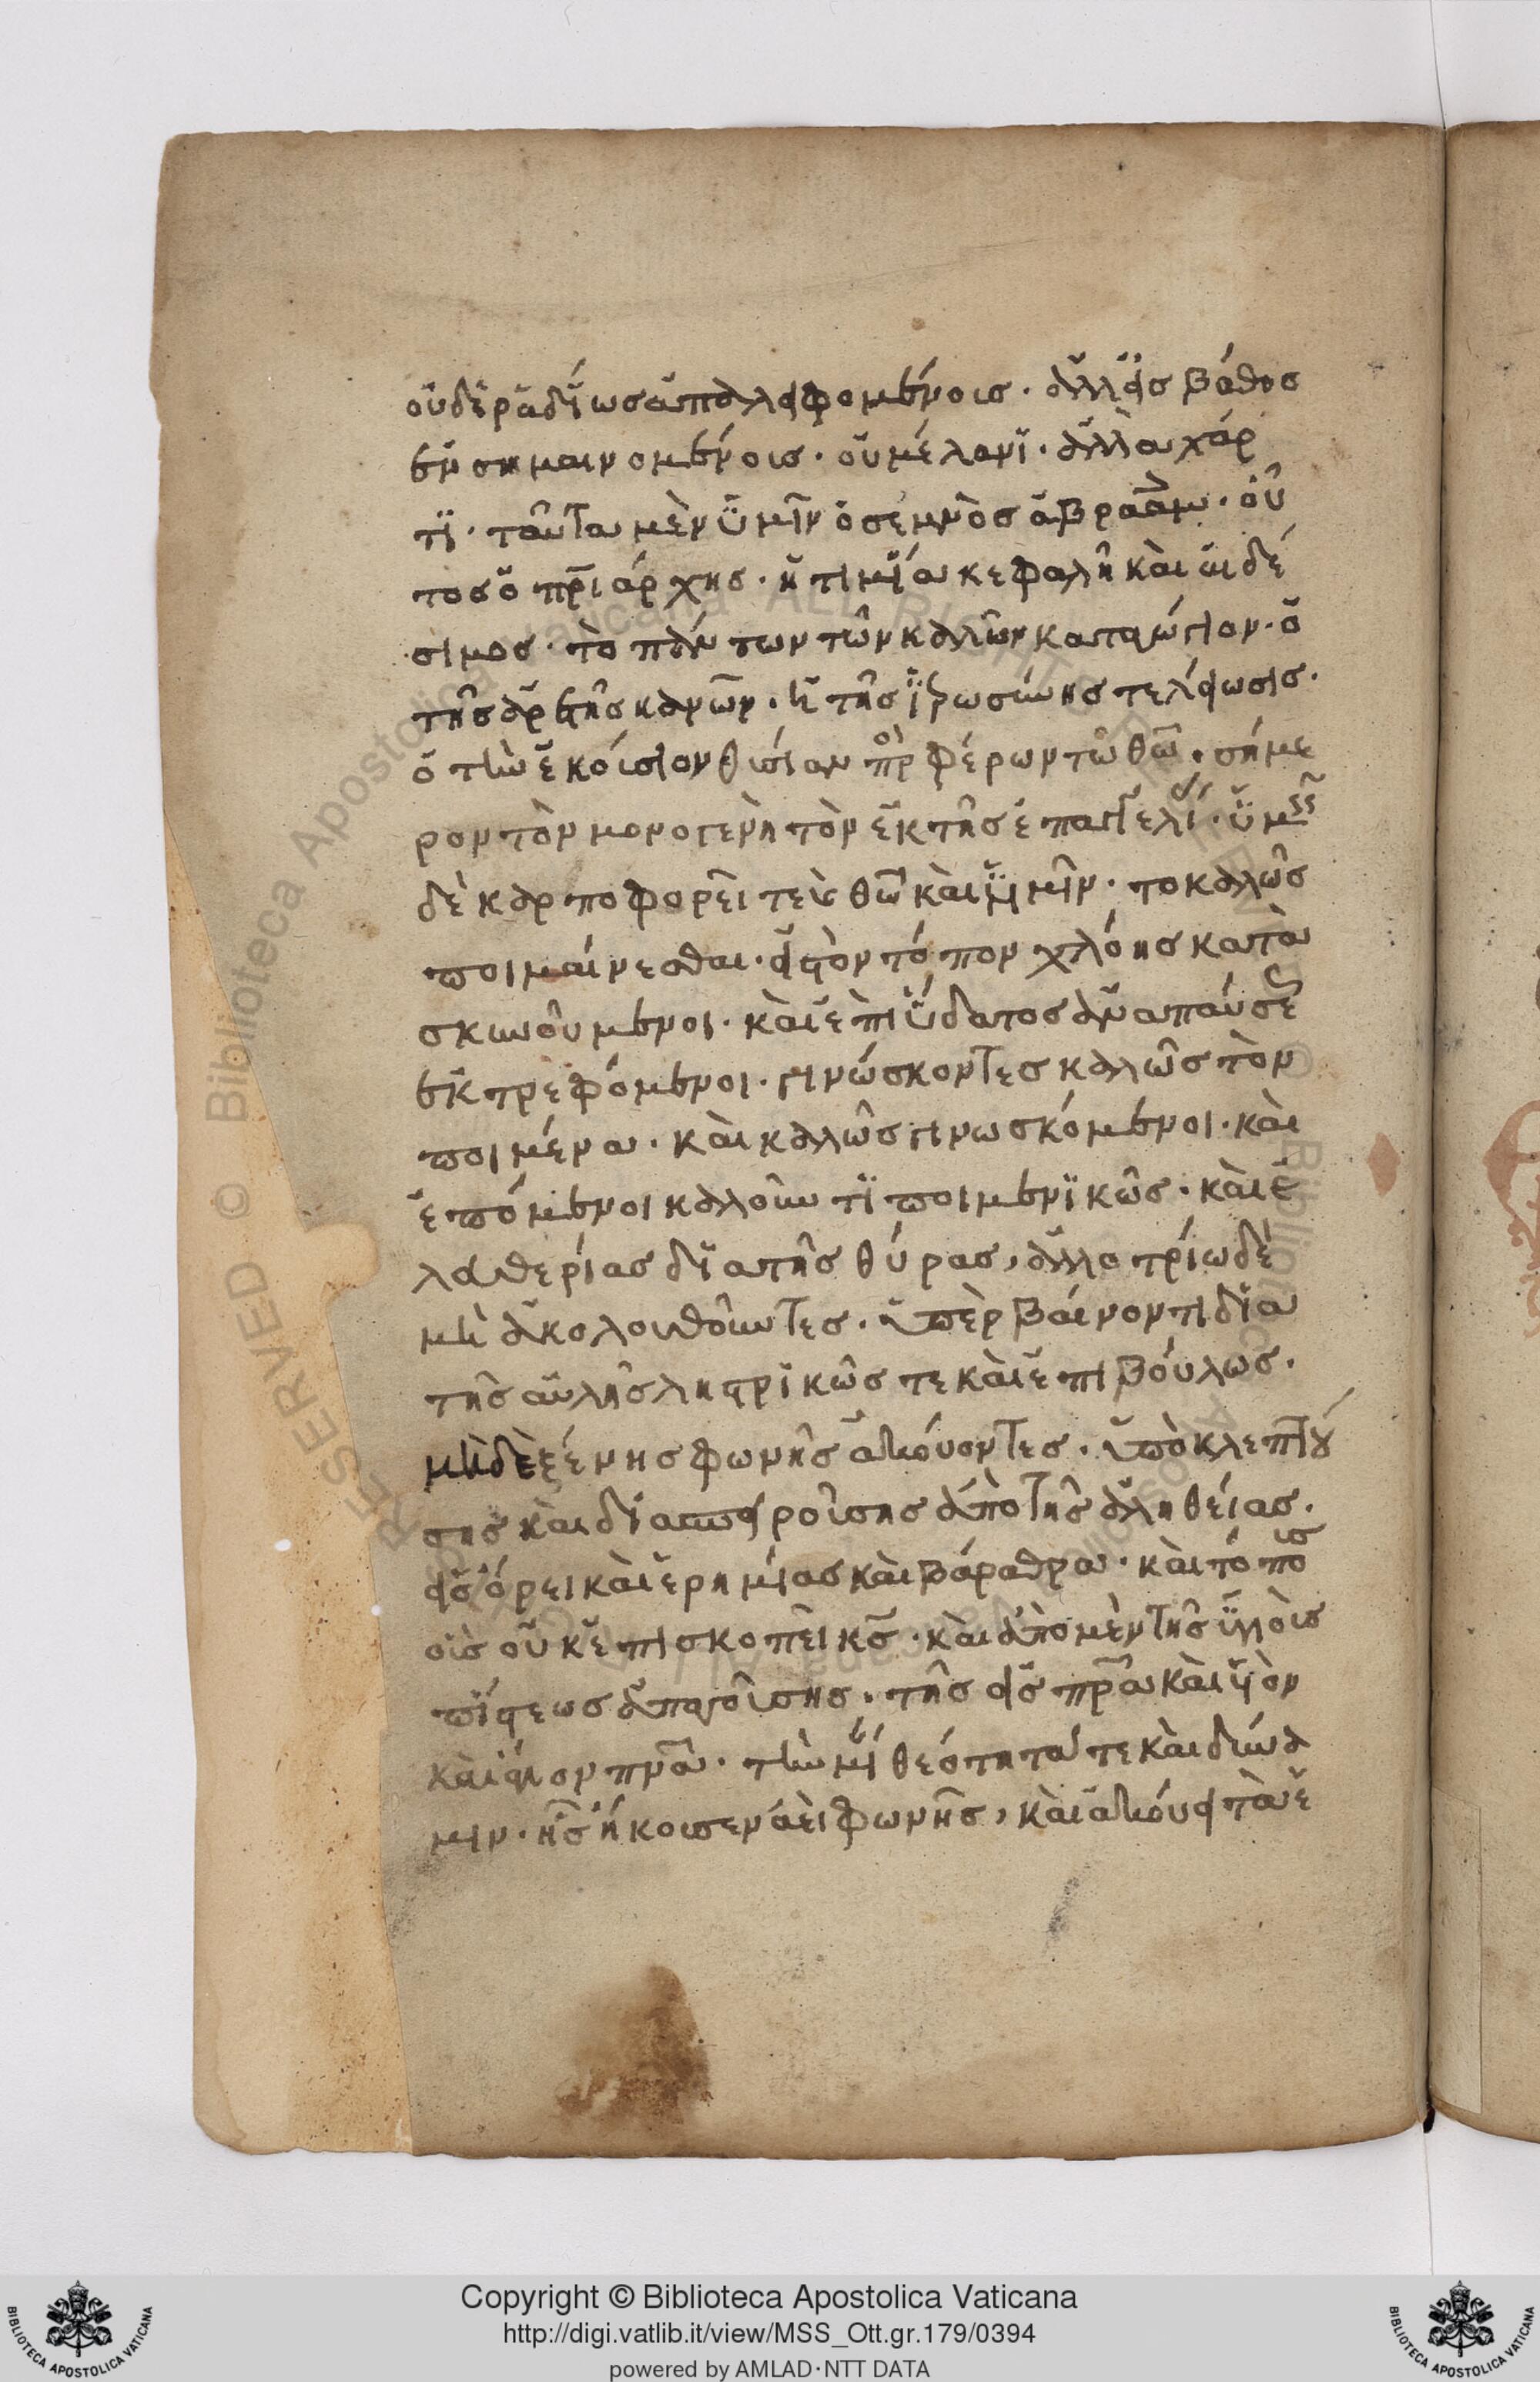 οὐδὲ ῥαδίως ἀπαλειφομένοις· ἀλλ' εἰς βάθος
ἐνσημαινομένοις· οὐ μέλανι· ἀλλὰ χάρ
τι· ταῦτα μὲν ὑμῖν ὁ σεμνὸς ἀβραάμ· οὗ
τος ὁ πριάρχης· ἡ τιμία κεφαλὴ καὶ αἰδέ
σιμος· τὸ πάντων τῶν καλῶν καταγώγιον· ὁ
τῆς ἀρετῆς κανών· ἡ τῆς ἱερωσύνης τελείωσις·
ὁ τὴν ἑκούσιον θυσίαν προφέρων τῶ θω· σήμε
ρον τὸν μονογενῆ τὸν ἐκ τῆς ἐπαγγελί· ὑμεῖς
δὲ καρποφορεῖτε θω καὶ ἡμῖν· το καλῶς
ποιμαίνεσθαι· εἰς τόπον χλόης κατα
σκηνούμενοι· καὶ ἐπὶ ὕδατος ἀναπαύσε
ἐκτρεφόμενοι· γινώσκοντες καλῶς τὸν
ποιμένα· καὶ καλῶς γινωσκόμενοι· καὶ
ἑπόμενοι καλοῦντι ποιμενικῶς· καὶ ἐ
λευθερίας διὰ τῆς θύρας, ἀλλοτρίω δὲ
μὴ ἀκολουθοῦντες· ὑπερβαίνοντι διὰ
τῆς αὐλῆς ληστρικῶς τε καὶ ἐπιβούλως·
μηδὲ ξένης φωνῆς ἀκούοντες· ὑποκλεπτού
σης καὶ διασπειρούσης ἀπὸ τῆς ἀληθείας·
εἰς ὄρει καὶ ἐρημίας καὶ βάραθρα· καὶ τόπους
οἷς οὐκ ἐπισκοπεῖ κς· καὶ ἀπὸ μὲν τῆς ὑγιοῦς
πίστεως ἀπαγούσης· τῆς εἰς πρα καὶ υἱὸν
καὶ ἅγιον πνα· τὴν μίαν θεότητά τε καὶ δύνα
μιν· ἧς ἤκουσεν ἀεὶ φωνῆς, καὶ ἀκούει τὰ ἐ
Copyright © Biblioteca Apostolica Vaticana
http://digi.vatlib.it/view/MSS_Ott.gr.179/0394
powered by AMLAD·NTT DATA